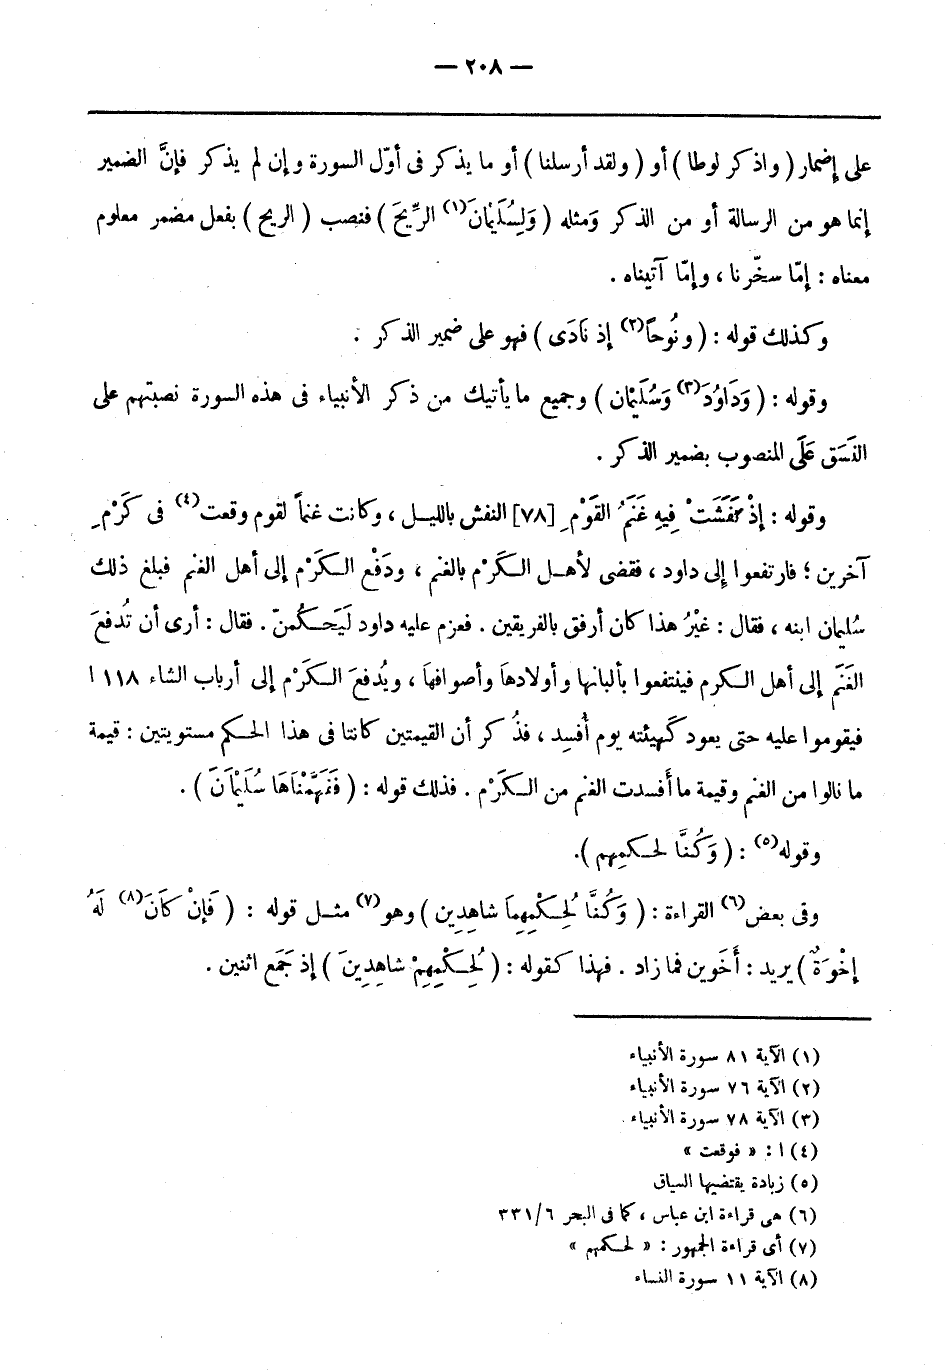 — ٢٠٨ —
على إضمار ( واذكر لوطا ) أو ( ولقد أرسلنا ) أو ما يذكر فى أوّل السورة وإن لم يذكر فإنَّ الضمير
إنما هو من الرسالة أو من الذكر وَمثله ( وَلِسُلَيْمَانَ(١) الرِّيحَ ) فنصب ( الريح ) بفعل مضمر معلوم
معناه : إمّا سخّرنا ، وإمّا آتيناه .
وكذلك قوله : ( ونُوحاً(٢) إذ نَادَى ) فهو على ضمير الذكر .
وقوله : ( وَدَاوُدَ(٣) وَسُلَيْمَان ) وجميع ما يأتيك من ذكر الأنبياء فى هذه السورة نصبتهم على
النَسَق عَلَى المنصوب بضمير الذكر .
وقوله : إذْ نَفَشَتْ فِيهِ غَنَمُ القَوْمِ [٧٨] النفش بالليل ، وكانت غنماً لقوم وقعت(٤) فى كَرْمِ
آخرين ؛ فارتفعوا إلى داود ، فقضى لأهل الكَرْم بالغنم ، ودَفْع الكَرْم إلى أهل الغنم فبلغ ذلك
سُليمان ابنه ، فقال : غيْرُ هذا كان أرفق بالفريقين . فعزم عليه داود لَيَحَكُمنّ . فقال : أرى أن تُدفعَ
الغَنَم إلى أهل الكرم فينتفعوا بألبانها وأولادهاَ وأصوافهاَ ، ويُدفعَ الكَرْم إلى أرباب الشاء ١١٨ ا
فيقوموا عليه حتى يعود كَهيئته يوم أُفسِد ، فذُكر أن القيمتين كانتا فى هذا الحكم مستويتين : قيمة
ما نالوا من الغنم وقيمة ما أَفسدت الغنم من الكَرْم . فذلك قوله : ( فَفَهَّمْنَاهَا سُلَيْمَانَ ) .
وقوله(٥) : ( وَكُنَّا لحكمِهم ).
وفى بعض(٦) القراءة : ( وَكُنَّا لِحُكْمِهِمَا شاهِدِين ) وهو(٧) مثل قوله : ( فَإنْ كَانَ(٨) لَهُ
إخْوَةٌ ) يريد : أَخَوين فما زاد . فهذا كقوله : ( لِحُكْمِهِمْ شاهِدِينَ ) إذ جَمَع اثنين .
(١) الآية ٨١ سورة الأنبياء
(٢) الآية ٧٦ سورة الأنبياء
(٣) الآية ٧٨ سورة الأنبياء
(٤) ا : « فوقعت »
(٥) زيادة يقتضيها السياق
(٦) هى قراءة ابن عباس ، كما فى البحر ٣٣١/٦
(٧) أى قراءة الجمهور : « لحكمهم »
(٨) الآية ١١ سورة النساء